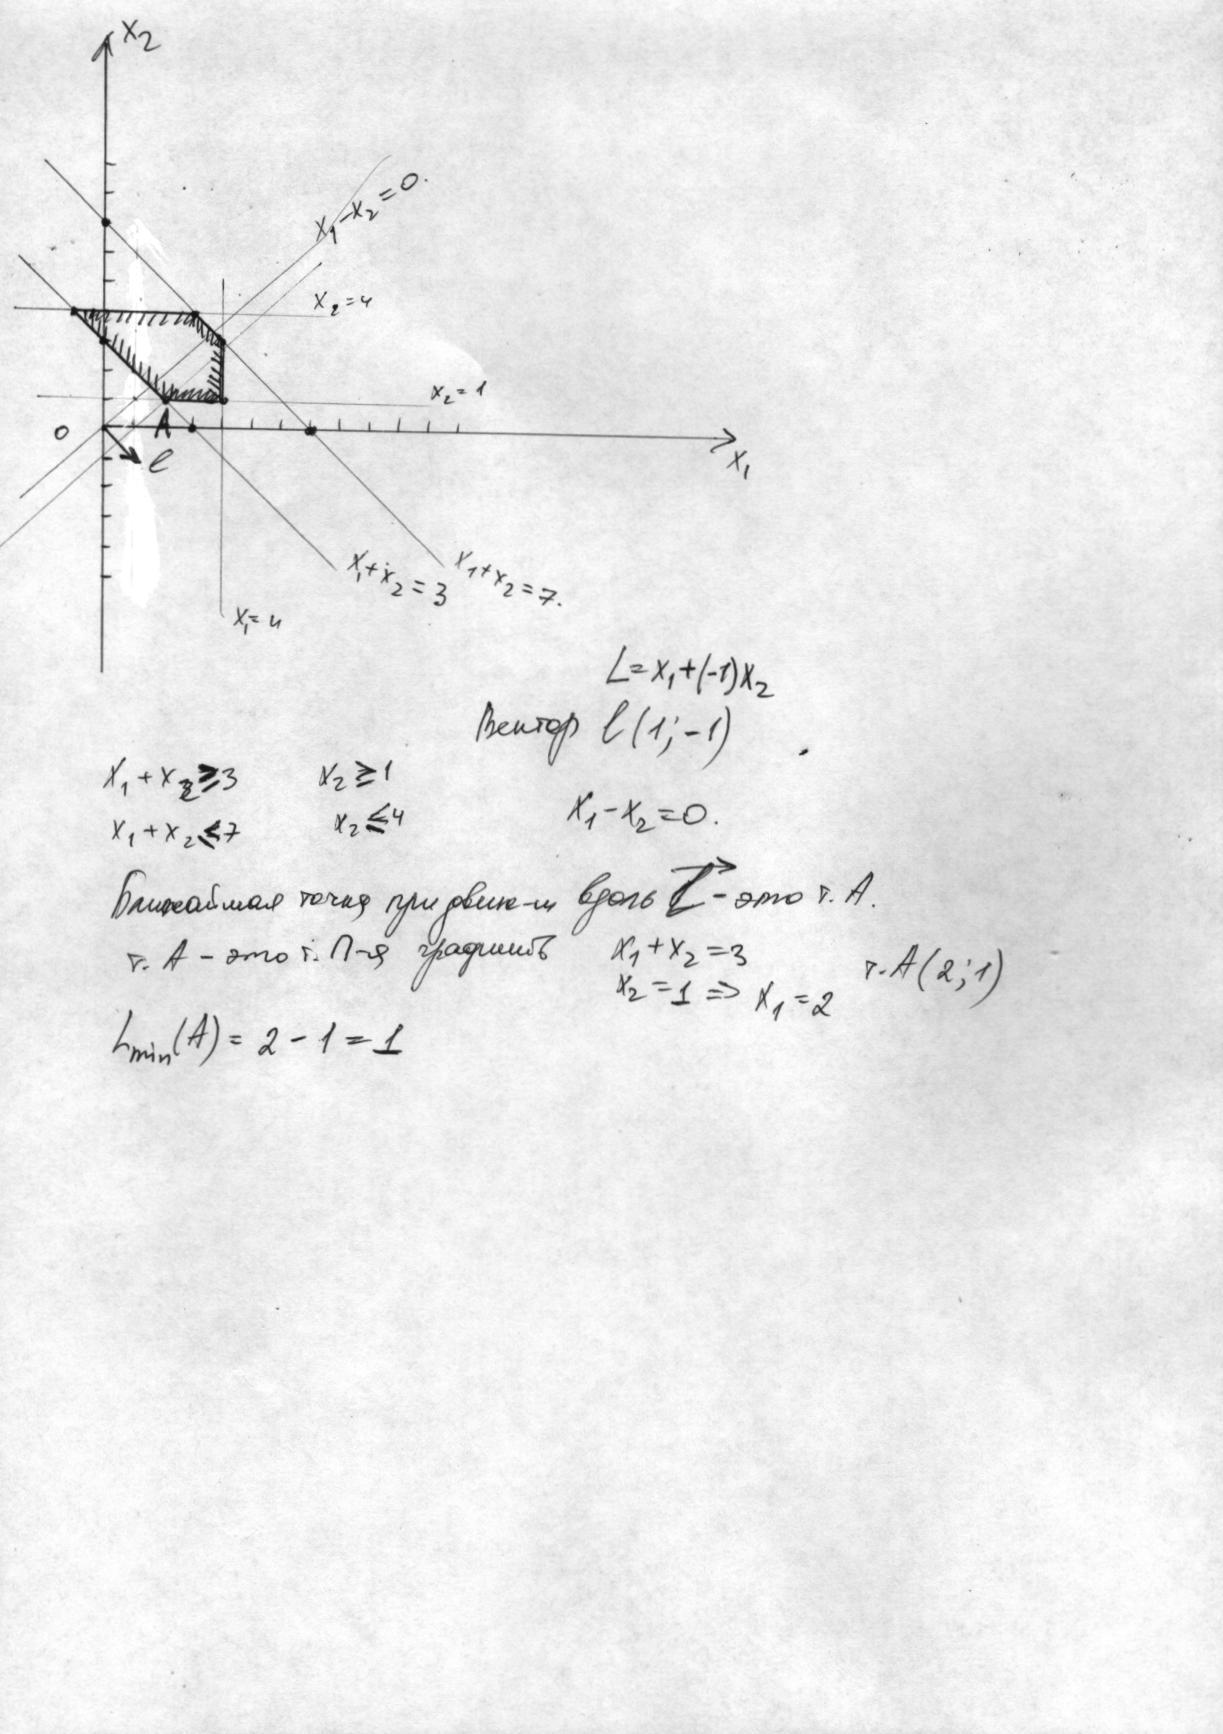 x₂
x₁-x₂=0.
x₂=4
x₂=1
0
A
x₁
l
x₁+x₂=3
x₁+x₂=7.
x₁=4
L=x₁+(-1)x₂
Вектор l(1;-1)
x₁+x₂≥3 x₂≥1
x₁+x₂≤7 x₂≤4 x₁-x₂=0.
Ближайшая точка при движ-и вдоль l - это т. A.
т. A - это т. П-я границ x₁+x₂=3 т. A(2;1)
x₂=1 => x₁=2
Lmin(A)=2-1=1